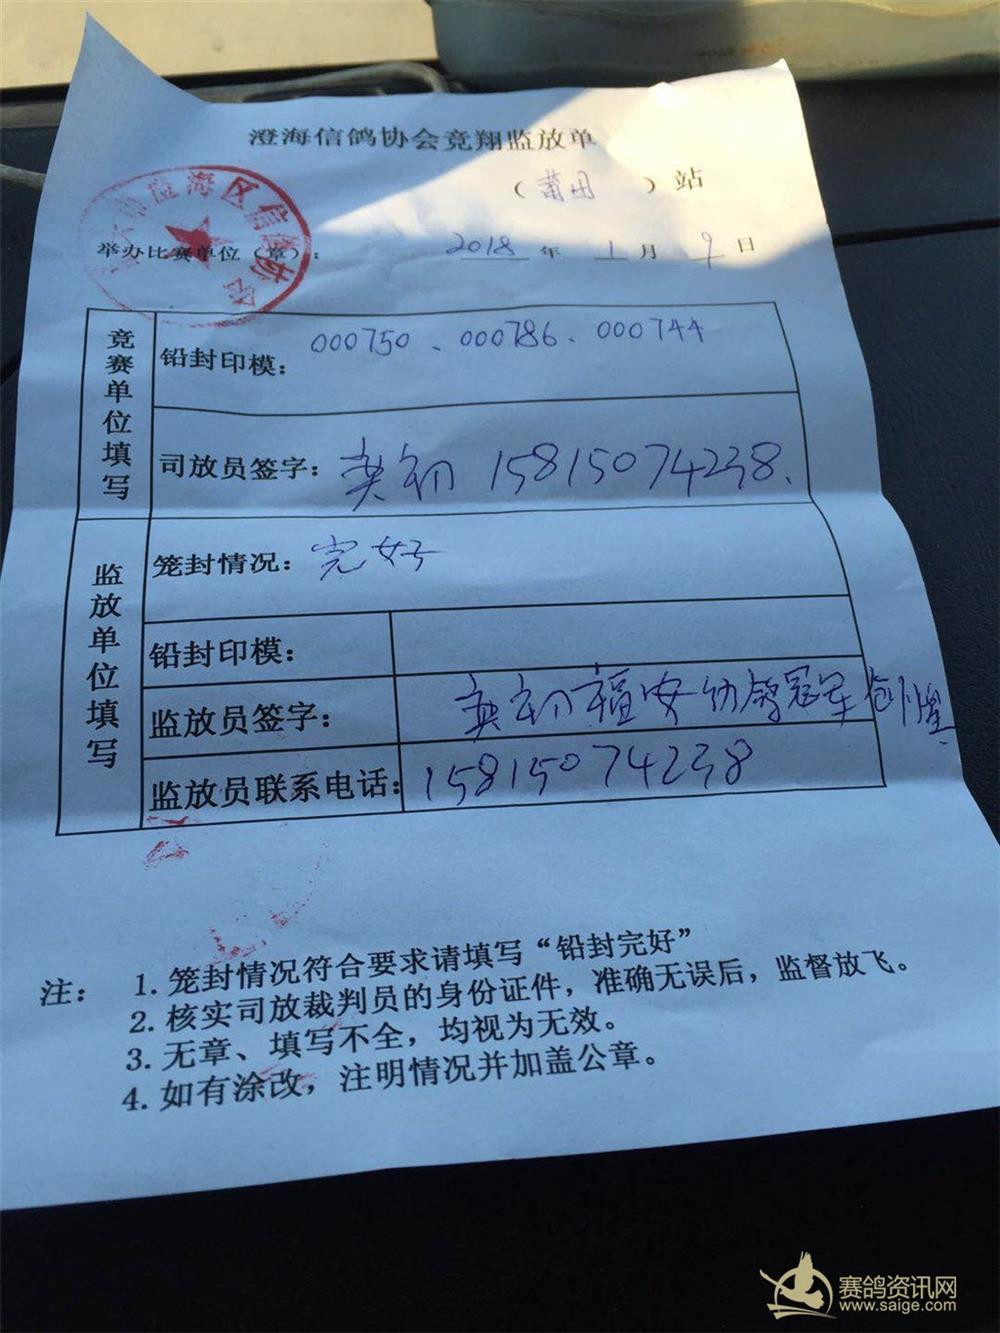 澄海信鸽协会竞翔监放单
（莆田）站
举办比赛单位（章）： 2018年1月9日
澄海区信鸽协会
竞赛单位填写
铅封印模：000750、000786、000744
司放员签字： 15815074238
监放单位填写
笼封情况：完好
铅封印模：
监放员签字： 福安幼鸽冠军
监放员联系电话：15815074238
注：1. 笼封情况符合要求请填写“铅封完好”
2. 核实司放裁判员的身份证件，准确无误后，监督放飞。
3. 无章、填写不全，均视为无效。
4. 如有涂改，注明情况并加盖公章。
赛鸽资讯网
www.saige.com